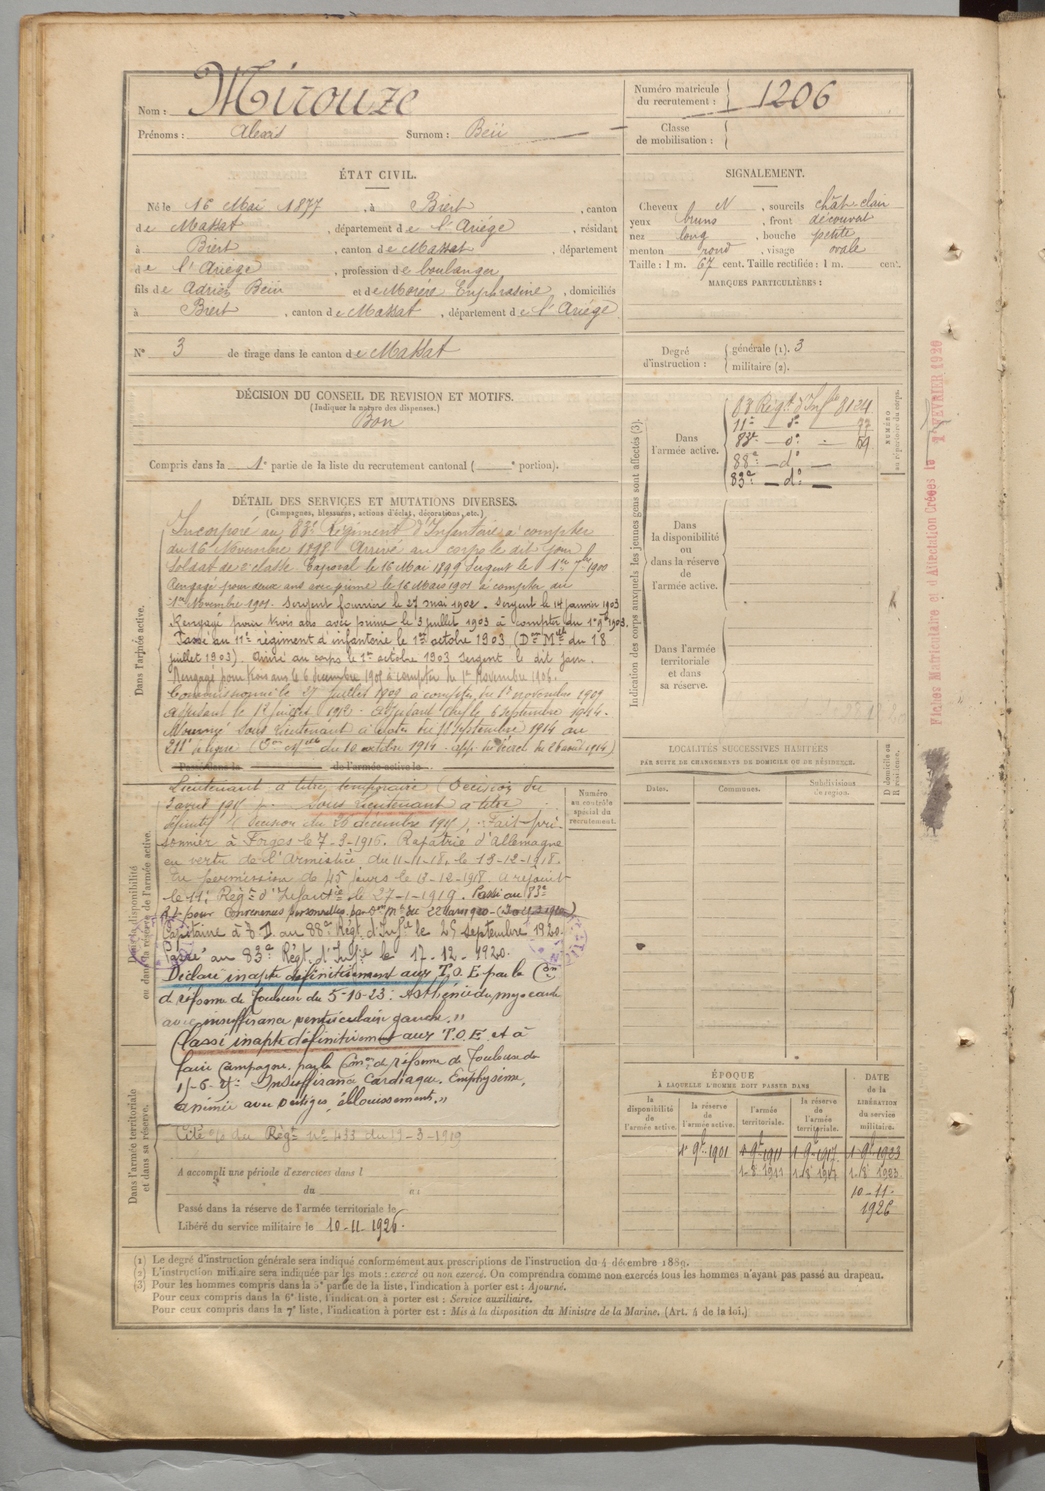 Nom : Mirouze
Prénoms : Alexis Surnom : Beü
Numéro matricule du recrutement : 1206
Classe de mobilisation :
ÉTAT CIVIL.
Né le 16 Mai 1877, à Biert, canton
de Massat, département de l'Ariège, résidant
à Biert, canton de Massat, département
de l'Ariège, profession de boulanger,
fils de Adrien Beü et de Morère Euphrasine, domiciliés
à Biert, canton de Massat, département de l'Ariège
N° 3 de tirage dans le canton de Massat
SIGNALEMENT.
Cheveux N, sourcils chât-clair
yeux bruns, front découvert
nez long, bouche petite
menton rond, visage ovale
Taille : 1 m. 67 cent. Taille rectifiée : 1 m. cent.
MARQUES PARTICULIÈRES :
Degré d'instruction : générale (1). 3
militaire (2).
DÉCISION DU CONSEIL DE REVISION ET MOTIFS.
(Indiquer la nature des dispenses.)
Bon
Compris dans la 1e partie de la liste du recrutement cantonal ( e portion).
DÉTAIL DES SERVICES ET MUTATIONS DIVERSES.
(Campagnes, blessures, actions d'éclat, décorations, etc.)
Dans l'armée active.
Incorporé au 83e Régiment d'Infanterie à compter
du 16 Novembre 1898. Arrivé au corps le dit jour
soldat de 2e classe Caporal le 16 Mai 1899 Sergent le 1er 7bre 1900
Rengagé pour deux ans avec prime le 16 Mars 1901 à compter du
1er Novembre 1901. Sergent fourrier le 27 mai 1902. Sergent le 14 janvier 1903
Rengagé pour trois ans avec prime le 3 juillet 1903 à compter du 1er 9bre 1903.
Passé au 11e régiment d'infanterie le 1er octobre 1903 (Don Mlle du 18
juillet 1903). Arrivé au corps le 1er octobre 1903 Sergent le dit jour.
Rengagé pour trois ans le 6 décembre 1905 à compter du 1er Novembre 1906.
Commissionné le 27 Juillet 1909 à compter du 1er novembre 1909
Adjudant le 1er 1912. Adjudant chef le 6 septembre 1914.
Nommé Sous Lieutenant à dater du septembre 1914 au
211e de ligne (Don Mlle du 10 octobre 1914 - app. décret du 26 août 1914)
Passé dans la de l'armée active le
Dans la disponibilité ou dans la réserve de l'armée active.
Lieutenant à titre temporaire (Décision du
avril 1915). Sous Lieutenant à titre
définitif (décision du 26 décembre 1915). Fait pri-
sonnier à Forges le 7-3-1916. Rapatrié d'Allemagne
en vertu de l'Armistice du 11-11-18, le 13-12-1918.
En permission de 45 jours le 13-12-1918. A rejoint
le 11e Régt d'Infanterie le 27-1-1919. Passé au 83e
R.I. pour Convenances personnelles par Don Mle du 22 Mars 1920
Capitaine à T.D. au 88e Régt. d'Infie le 25 septembre 1920.
Passé au 83e Régt. d'Infie le 17-12-1920.
Déclaré inapte définitivement aux T.O.E par la Con
de réforme de Toulouse du 5-10-23 : Asthénie du myocarde
avec insuffisance ventriculaire gauche."
Classé inapte définitivement aux T.O.E. et à
faire Campagne par la Con de réforme de Toulouse du
Insuffisance Cardiaque. Emphysème,
anémie avec vertiges, éblouissements."
Dans l'armée territoriale et dans sa réserve.
Cité o/ du Régt n° 433 du 19-3-1919
A accompli une période d'exercices dans l
du au
Passé dans la réserve de l'armée territoriale le
Libéré du service militaire le 10-11-1926.
Numéro au contrôle spécial du recrutement.
Indication des corps auxquels les jeunes gens sont affectés (3).
NUMÉRO au répertoire du corps.
Dans l'armée active.
83 Régt d'Infie 8124
11e do 77
83e do 59
88e do
83e do
Dans la disponibilité ou dans la réserve de l'armée active.
Dans l'armée territoriale et dans sa réserve.
LOCALITÉS SUCCESSIVES HABITÉES
PAR SUITE DE CHANGEMENTS DE DOMICILE OU DE RÉSIDENCE.
Dates. Communes. Subdivisions de région. D domicile ou R résidence.
ÉPOQUE
À LAQUELLE L'HOMME DOIT PASSER DANS
la disponibilité de l'armée active. la réserve de l'armée active. l'armée territoriale. la réserve de l'armée territoriale.
DATE de la LIBÉRATION du service militaire.
1er 9bre 1901 1er 9bre 1911 1er 9bre 1917 1er 9bre 1923
1-8bre 1911 1-8bre 1917 1-8bre 1923
10-11-
1926
Fiches Matriculaire et d'Affectation Créées le 1er FEVRIER 1920
(1) Le degré d'instruction générale sera indiqué conformément aux prescriptions de l'instruction du 4 décembre 1889.
(2) L'instruction militaire sera indiquée par les mots : exercé ou non exercé. On comprendra comme non exercés tous les hommes n'ayant pas passé au drapeau.
(3) Pour les hommes compris dans la 5e partie de la liste, l'indication à porter est : Ajourné.
Pour ceux compris dans la 6e liste, l'indication à porter est : Service auxiliaire.
Pour ceux compris dans la 7e liste, l'indication à porter est : Mis à la disposition du Ministre de la Marine. (Art. 4 de la loi.)